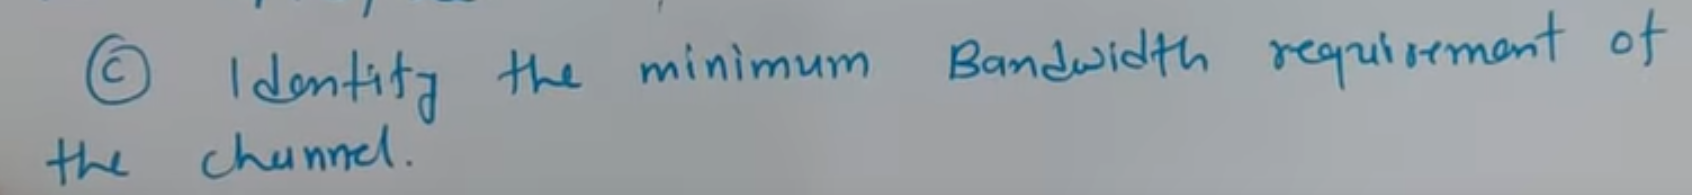 Ⓒ Identity the minimum Bandwidth requirement of
the channel.